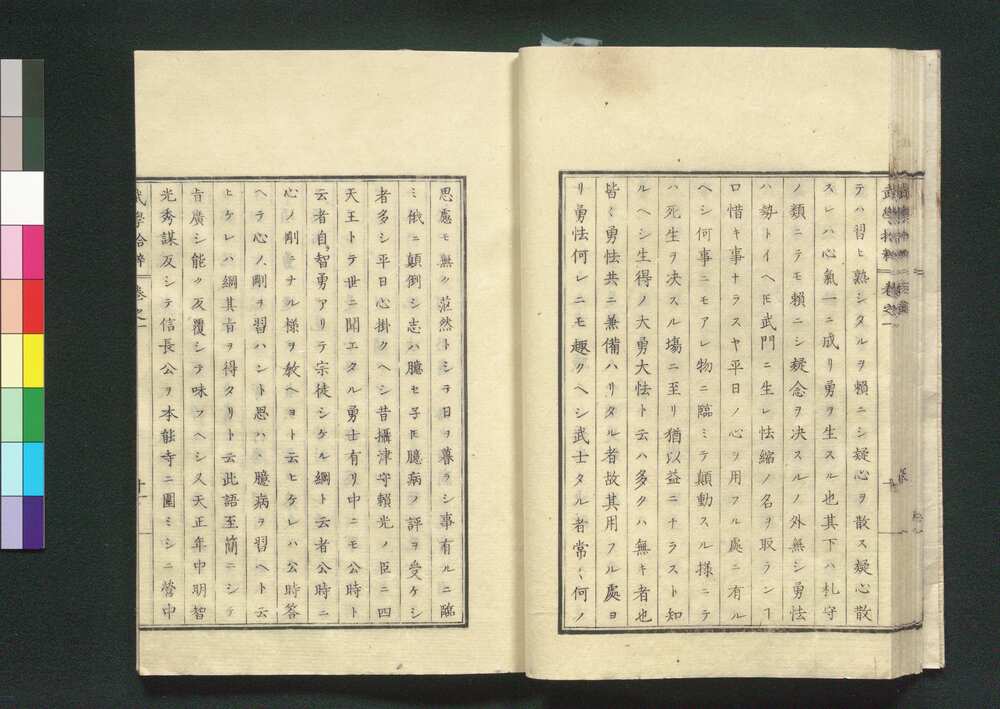 テハ習ヒ熟シタルヲ頼ニシ疑心ヲ散ス疑心散
スレハ心氣一ニ成リ勇ヲ生スル也其下ハ札守
ノ類ニテモ頼ニシ疑念ヲ决スルノ外無シ勇怯
ハ勢トイヘ𪜈武門ニ生レ怯縮ノ名ヲ取ランヿ
口惜キ事ナラスヤ平日ノ心ヲ用フル處ニ有ル
ヘシ何事ニモアレ物ニ臨ミテ顛動スル様ニテ
ハ死生ヲ决スル塲ニ至リ猶以益ニナラスト知
ルヘシ生得ノ大勇大怯ト云ハ多クハ無キ者也
皆〻勇怯共ニ兼備ハリタル者故其用フル處ヨ
リ勇怯何レニモ趣クヘシ武士タル者常〻何ノ
思慮モ無ク茫然トシテ日ヲ暮ラシ事有ルニ臨
ミ俄ニ顛倒シ志ハ臆セ子𪜈臆病ノ評ヲ受ケシ
者多シ平日心掛クヘシ昔攝津守頼光ノ臣ニ四
天王トテ世ニ聞エタル勇士有リ中ニモ公時ト
云者自ラ智勇アリテ宗徒シケル綱ト云者公時ニ
心ノ剛ニナル様ヲ教ヘヨト云ヒケレハ公時答
ヘテ心ノ剛ヲ習ハント思ハヽ臆病ヲ習ヘト云
ヒケレハ綱其旨ヲ得タリト云此語至簡ニシテ
旨廣シ能ク反覆シテ味フヘシス天正年中明智
光秀謀反シテ信長公ヲ本能寺ニ圍ミシニ營中
武學拾粹 卷之一